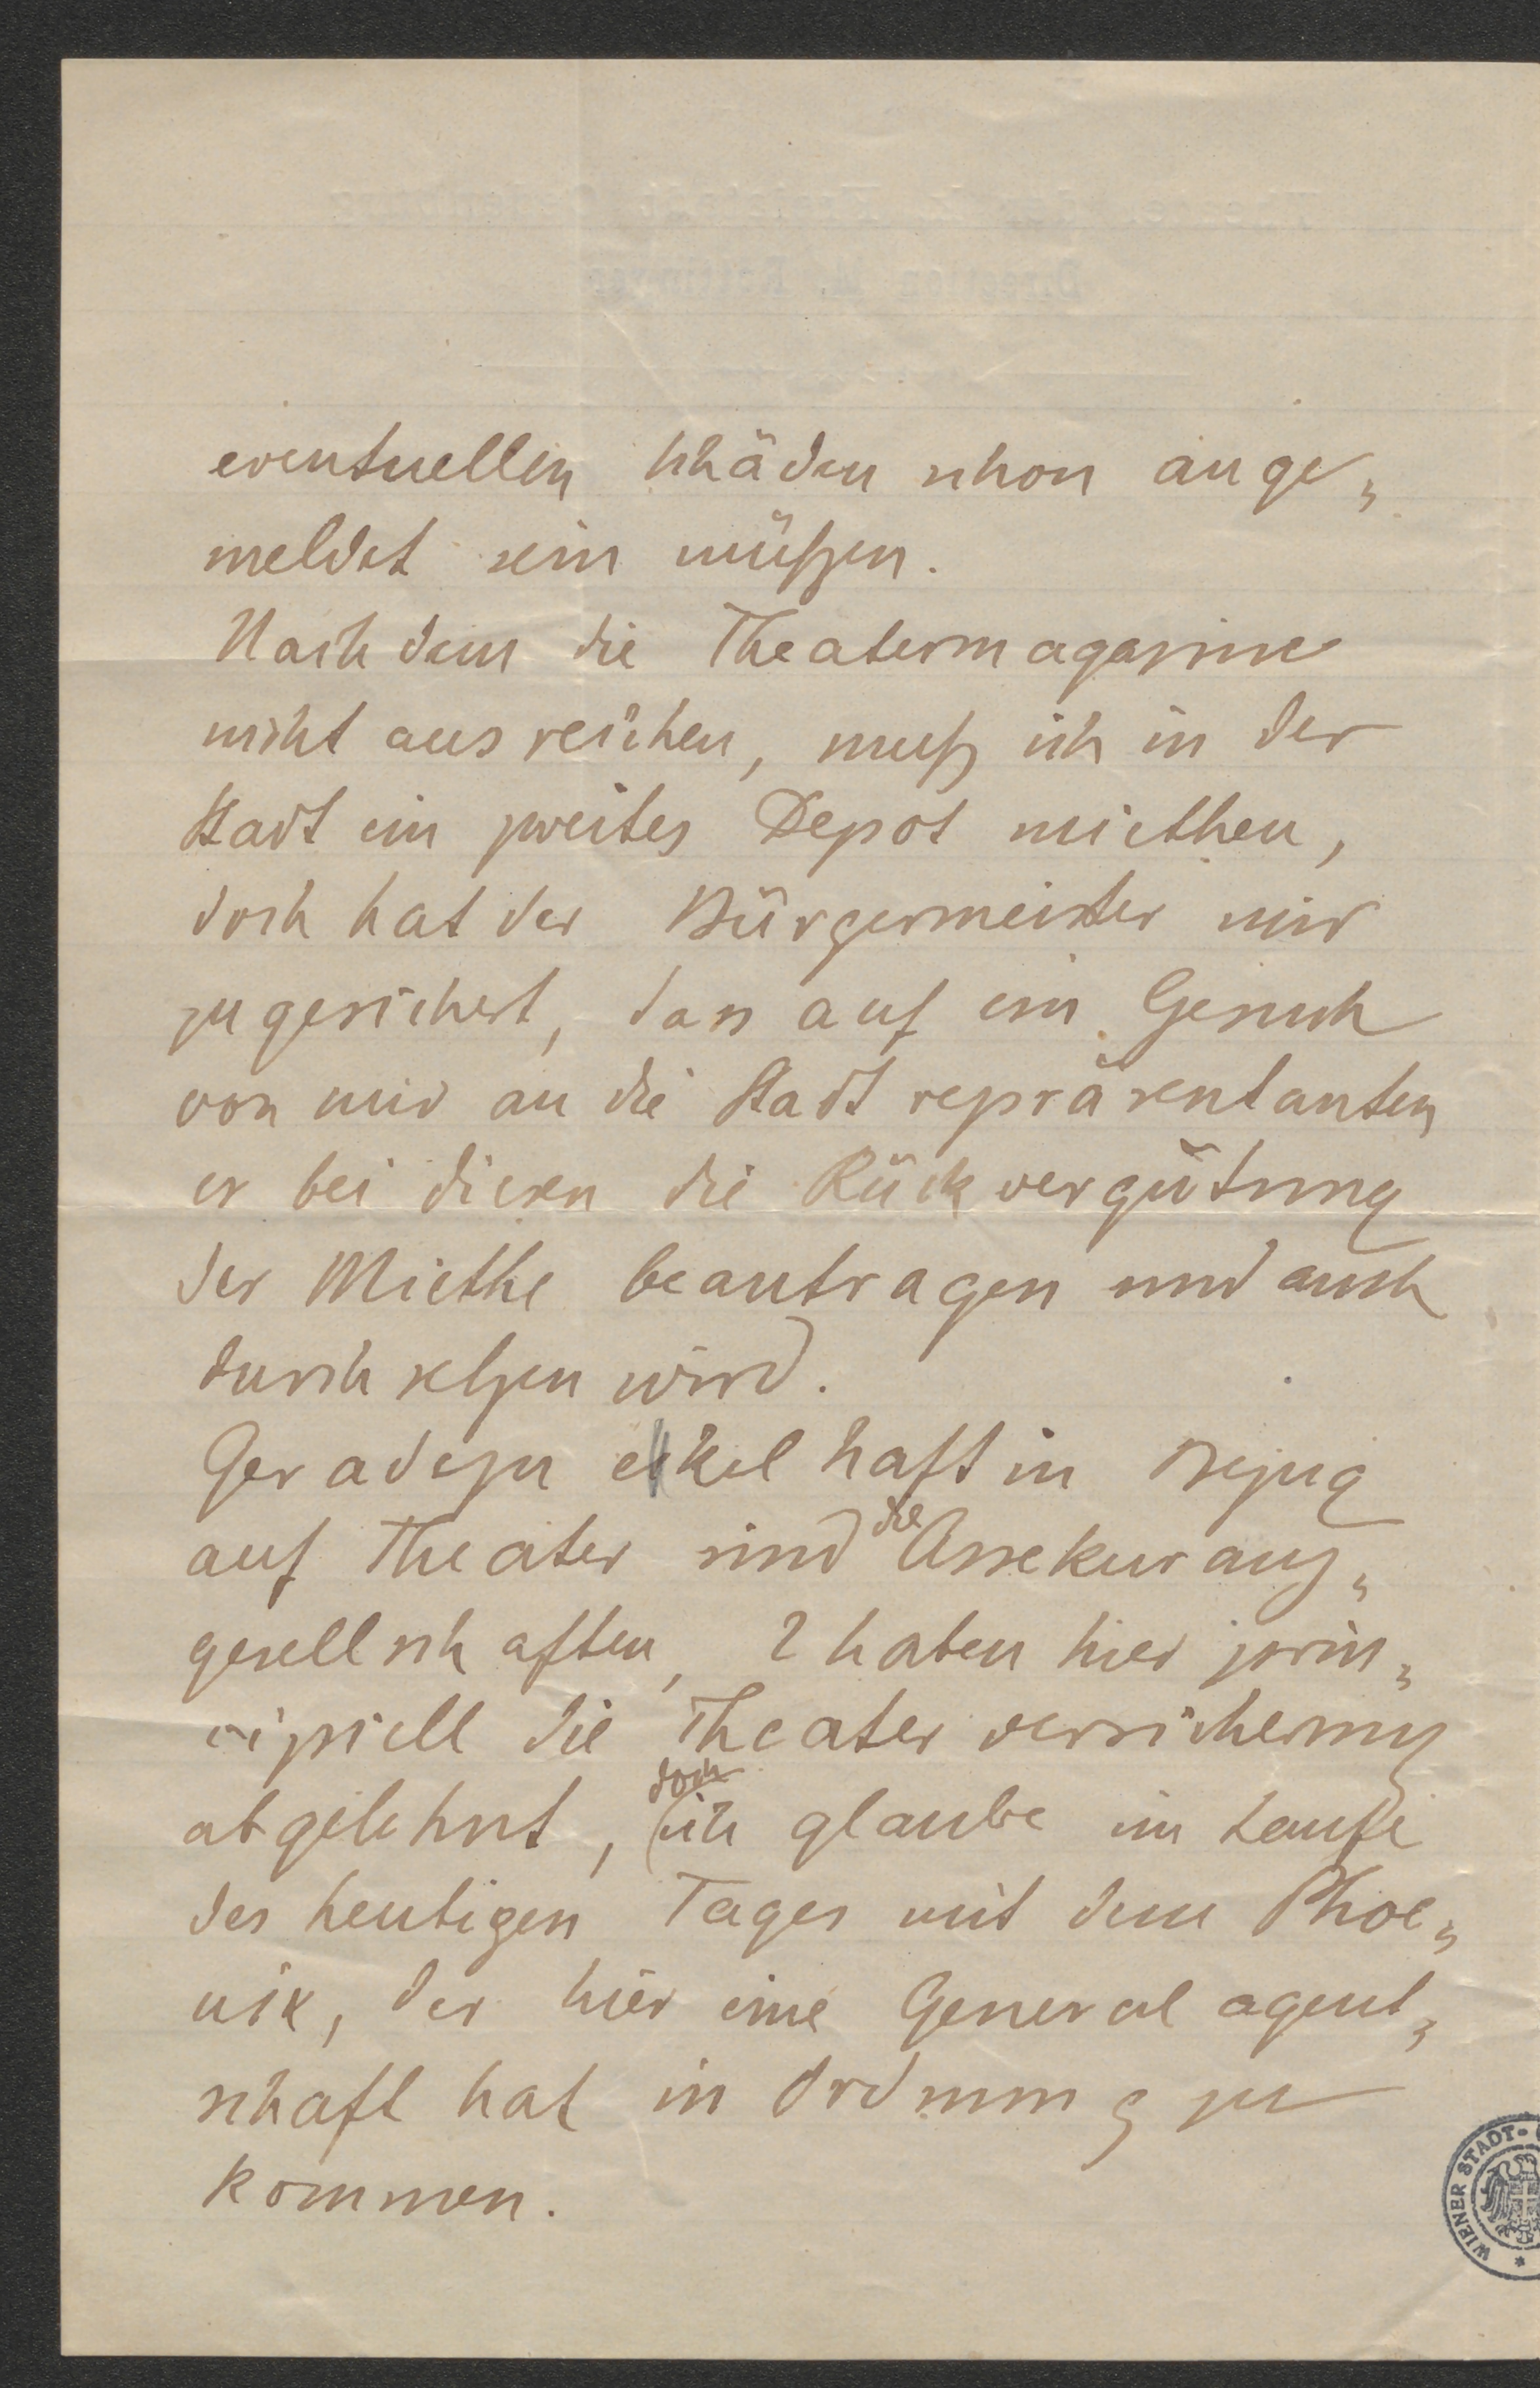 eventuellen Schäden schon ange„
meldet sein müßen.
Nachdem die Theatermagazine
nicht ausreichen, muß ich in der
Stadt ein zweites Depot miethen,
doch hat der Bürgermeister mir
zugesichert, dass auf ein Gesuch
von mir an die Stadtrepräsentanten
er bei diesen die Rückvergütung
der Miethe beantragen und auch
durchsetzen wird.
Geradezu ekelhaft in Bezug
auf Theater sind die Assekuranz„
gesellschaften, 2 haben hier prin„
cipiell die Theaterversicherung
abgelehnt, doch ich glaube im Laufe
des heutigen Tages mit dem Phoe„
nix, der hier eine Generalagent„
schaft hat in Ordnung zu
kommen.
WIENER STADT-